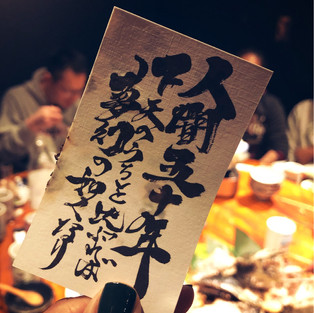 人間五十年
下天のうちを比ぶれば
夢幻の如くなり